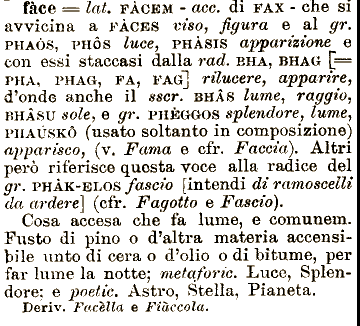 fàce = lat. FÀCEM - acc. di FAX - che si
avvicina a FÀCES viso, figura e al gr.
PHAÓS, PHÔS luce, PHÀSIS apparizione e
con essi staccasi dalla rad. BHA, BHAG [=
PHA, PHAG, FA, FAG] rilucere, apparire,
d'onde anche il sscr. BHÂS lume, raggio,
BHÂSU sole, e gr. PHÈGGOS splendore, lume,
PHAÚSKÔ (usato soltanto in composizione)
apparisco, (v. Fama e cfr. Faccia). Altri
però riferisce questa voce alla radice del
gr. PHÀK-ELOS fascio [intendi di ramoscelli
da ardere] (cfr. Fagotto e Fascio).
Cosa accesa che fa lume, e comunem.
Fusto di pino o d'altra materia accensi-
bile unto di cera o d'olio o di bitume, per
far lume la notte; metaforic. Luce, Splen-
dore; e poetic. Astro, Stella, Pianeta.
Deriv. Facèlla e Fiàccola.